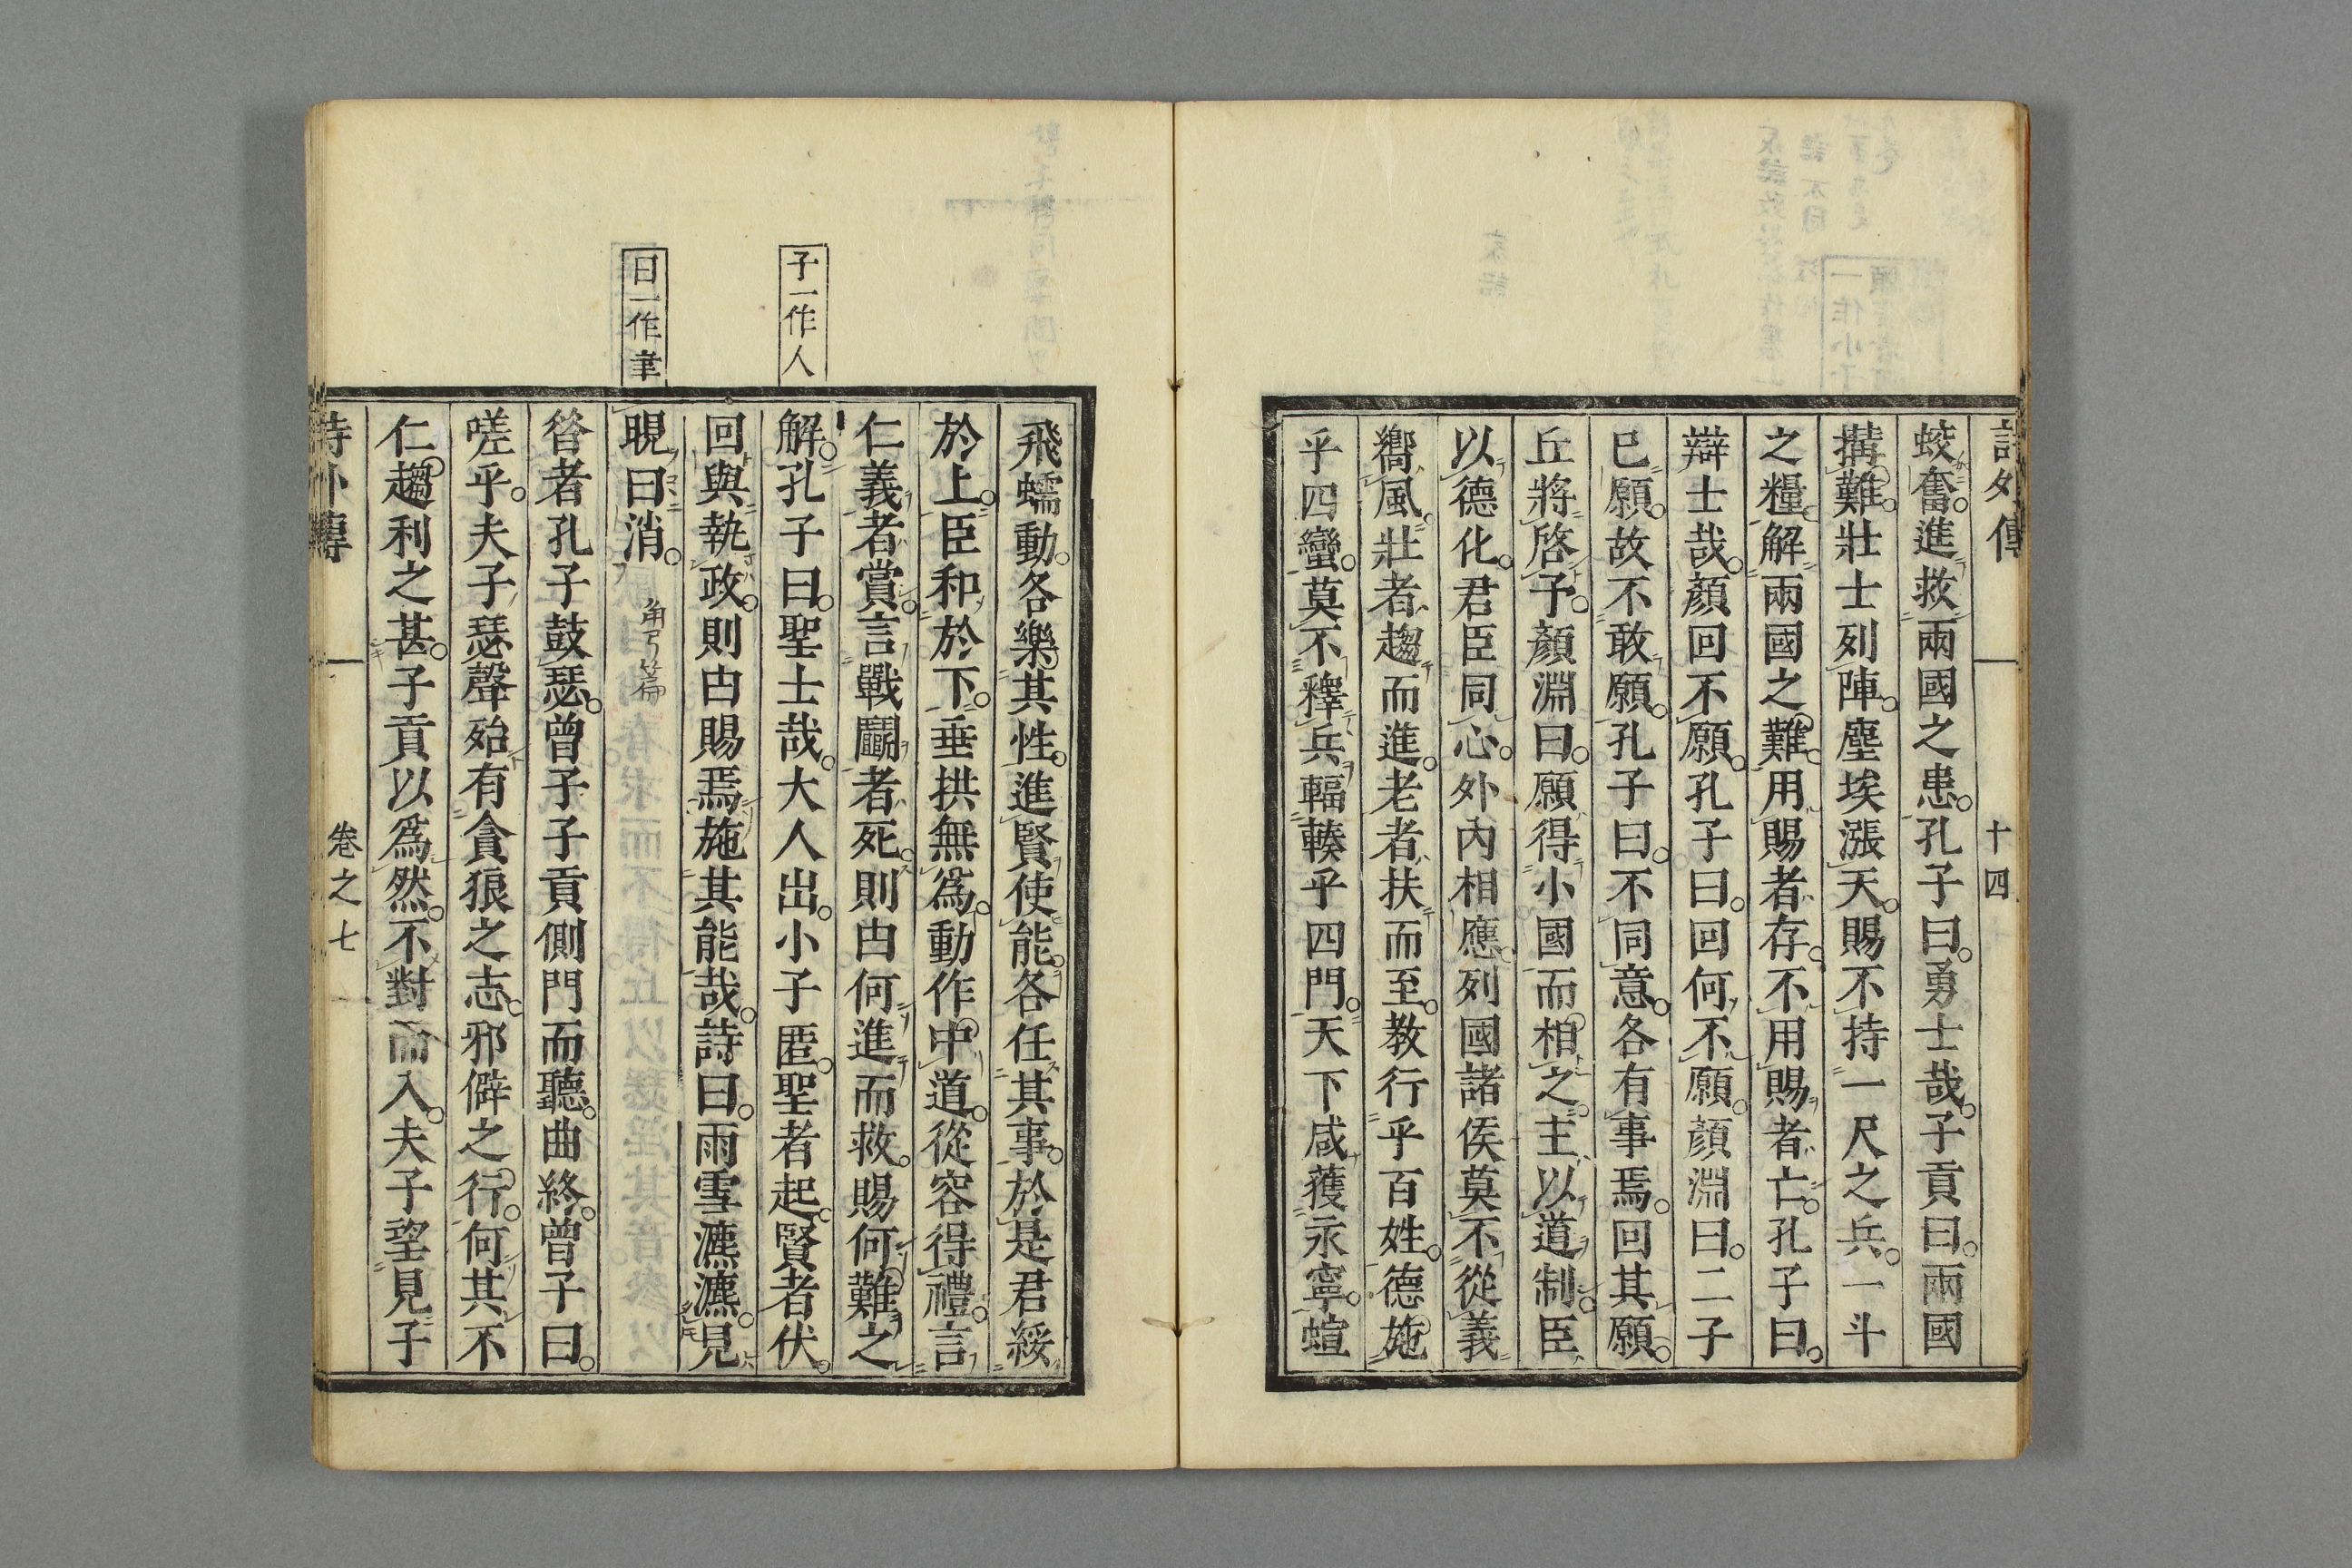 詩外傳 十四
蛟奮進救兩國之患孔子曰勇士哉子貢曰兩國
搆難壯士列陣塵埃漲天賜不持一尺之兵一斗
之糧解兩國之難用賜者存不用賜者亡孔子曰
辯士哉顏回不願孔子曰回何不願顏淵曰二子
已願故不敢願孔子曰不同意各有事焉回其願
丘將啓予顏淵曰願得小國而相之主以道制臣
以德化君臣同心外內相應列國諸侯莫不從義
嚮風壯者趨而進老者扶而至教行乎百姓德施
乎四蠻莫不釋兵輻輳乎四門天下咸獲永寧蝖
飛蠕動各樂其性進賢使能各任其事於是君綏
於上臣和於下垂拱無爲動作中道從容得禮言
仁義者賞言戰鬬者死則由何進而救賜何難之
子一作人
解孔子曰聖士哉大人出小子匿聖者起賢者伏
回與執政則由賜焉施其能哉詩曰雨雪瀌瀌見
曰一作聿
晛曰消 角弓篇
昝者孔子鼓瑟曾子子貢側門而聽曲終曾子曰
嗟乎夫子瑟聲殆有貪狼之志邪僻之行何其不
仁趨利之甚子貢以爲然不對而入夫子望見子
詩外傳 卷之七